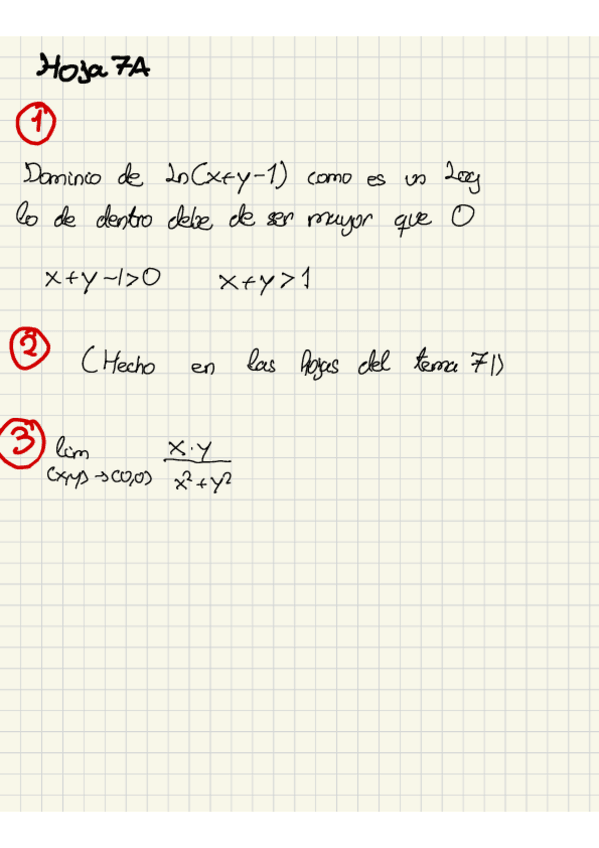 Hoja 7A
1
Dominio de Ln(x+y-1) como es un Log
lo de dentro debe de ser mayor que 0
x+y-1>0 x+y>1
2
(Hecho en las hojas del tema 7)
3
lim x·y
(x,y)→(0,0) x²+y²